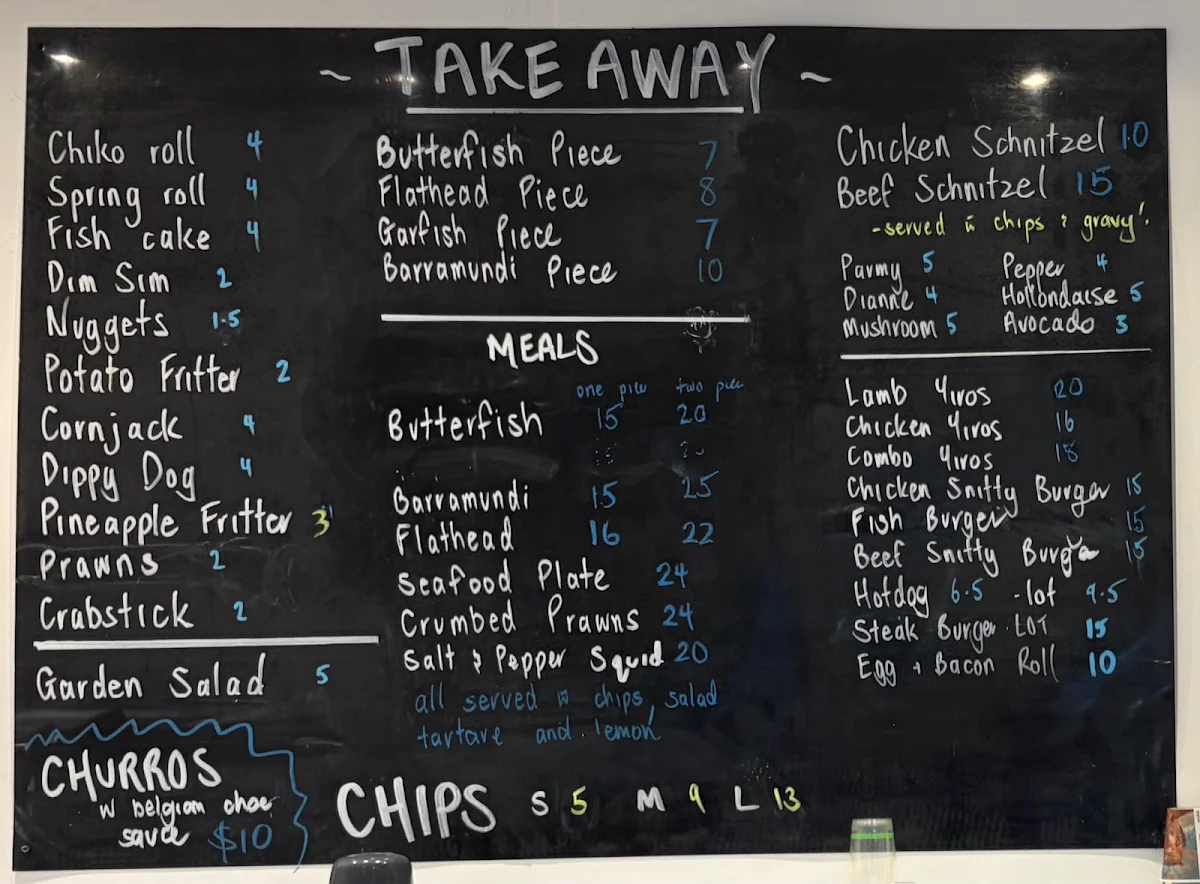 ~ TAKE AWAY ~
Chiko roll 4
Spring roll 4
Fish cake 4
Dim Sim 2
Nuggets 1.5
Potato Fritter 2
Cornjack 4
Dippy Dog 4
Pineapple Fritter 3
Prawns 2
Crabstick 2
Garden Salad 5
CHURROS
w belgian choc
sauce $10
Butterfish Piece 7
Flathead Piece 8
Garfish Piece 7
Barramundi Piece 10
MEALS
one piece two piece
Butterfish 15 20
Barramundi 15 25
Flathead 16 22
Seafood Plate 24
Crumbed Prawns 24
Salt & Pepper Squid 20
all served w chips, salad
tartare and lemon
CHIPS S 5 M 9 L 13
Chicken Schnitzel 10
Beef Schnitzel 15
-served w chips & gravy!
Parmy 5 Pepper 4
Dianne 4 Hollondaise 5
Mushroom 5 Avocado 3
Lamb Yiros 20
Chicken Yiros 16
Combo Yiros 18
Chicken Snitty Burger 15
Fish Burger 15
Beef Snitty Burger 15
Hotdog 6.5 - lot 9.5
Steak Burger. LOT 15
Egg + Bacon Roll 10